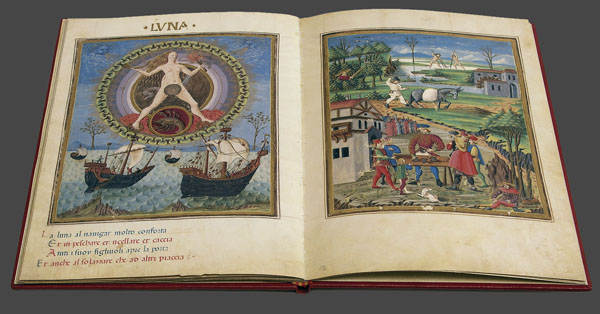 ·LVNA·
La luna al nauigar molto conforta
Et in peschare et ucellare et caccia
A tuti i suoy figliuoli apre la porta
Et anche al solassare che ad altri piaccia